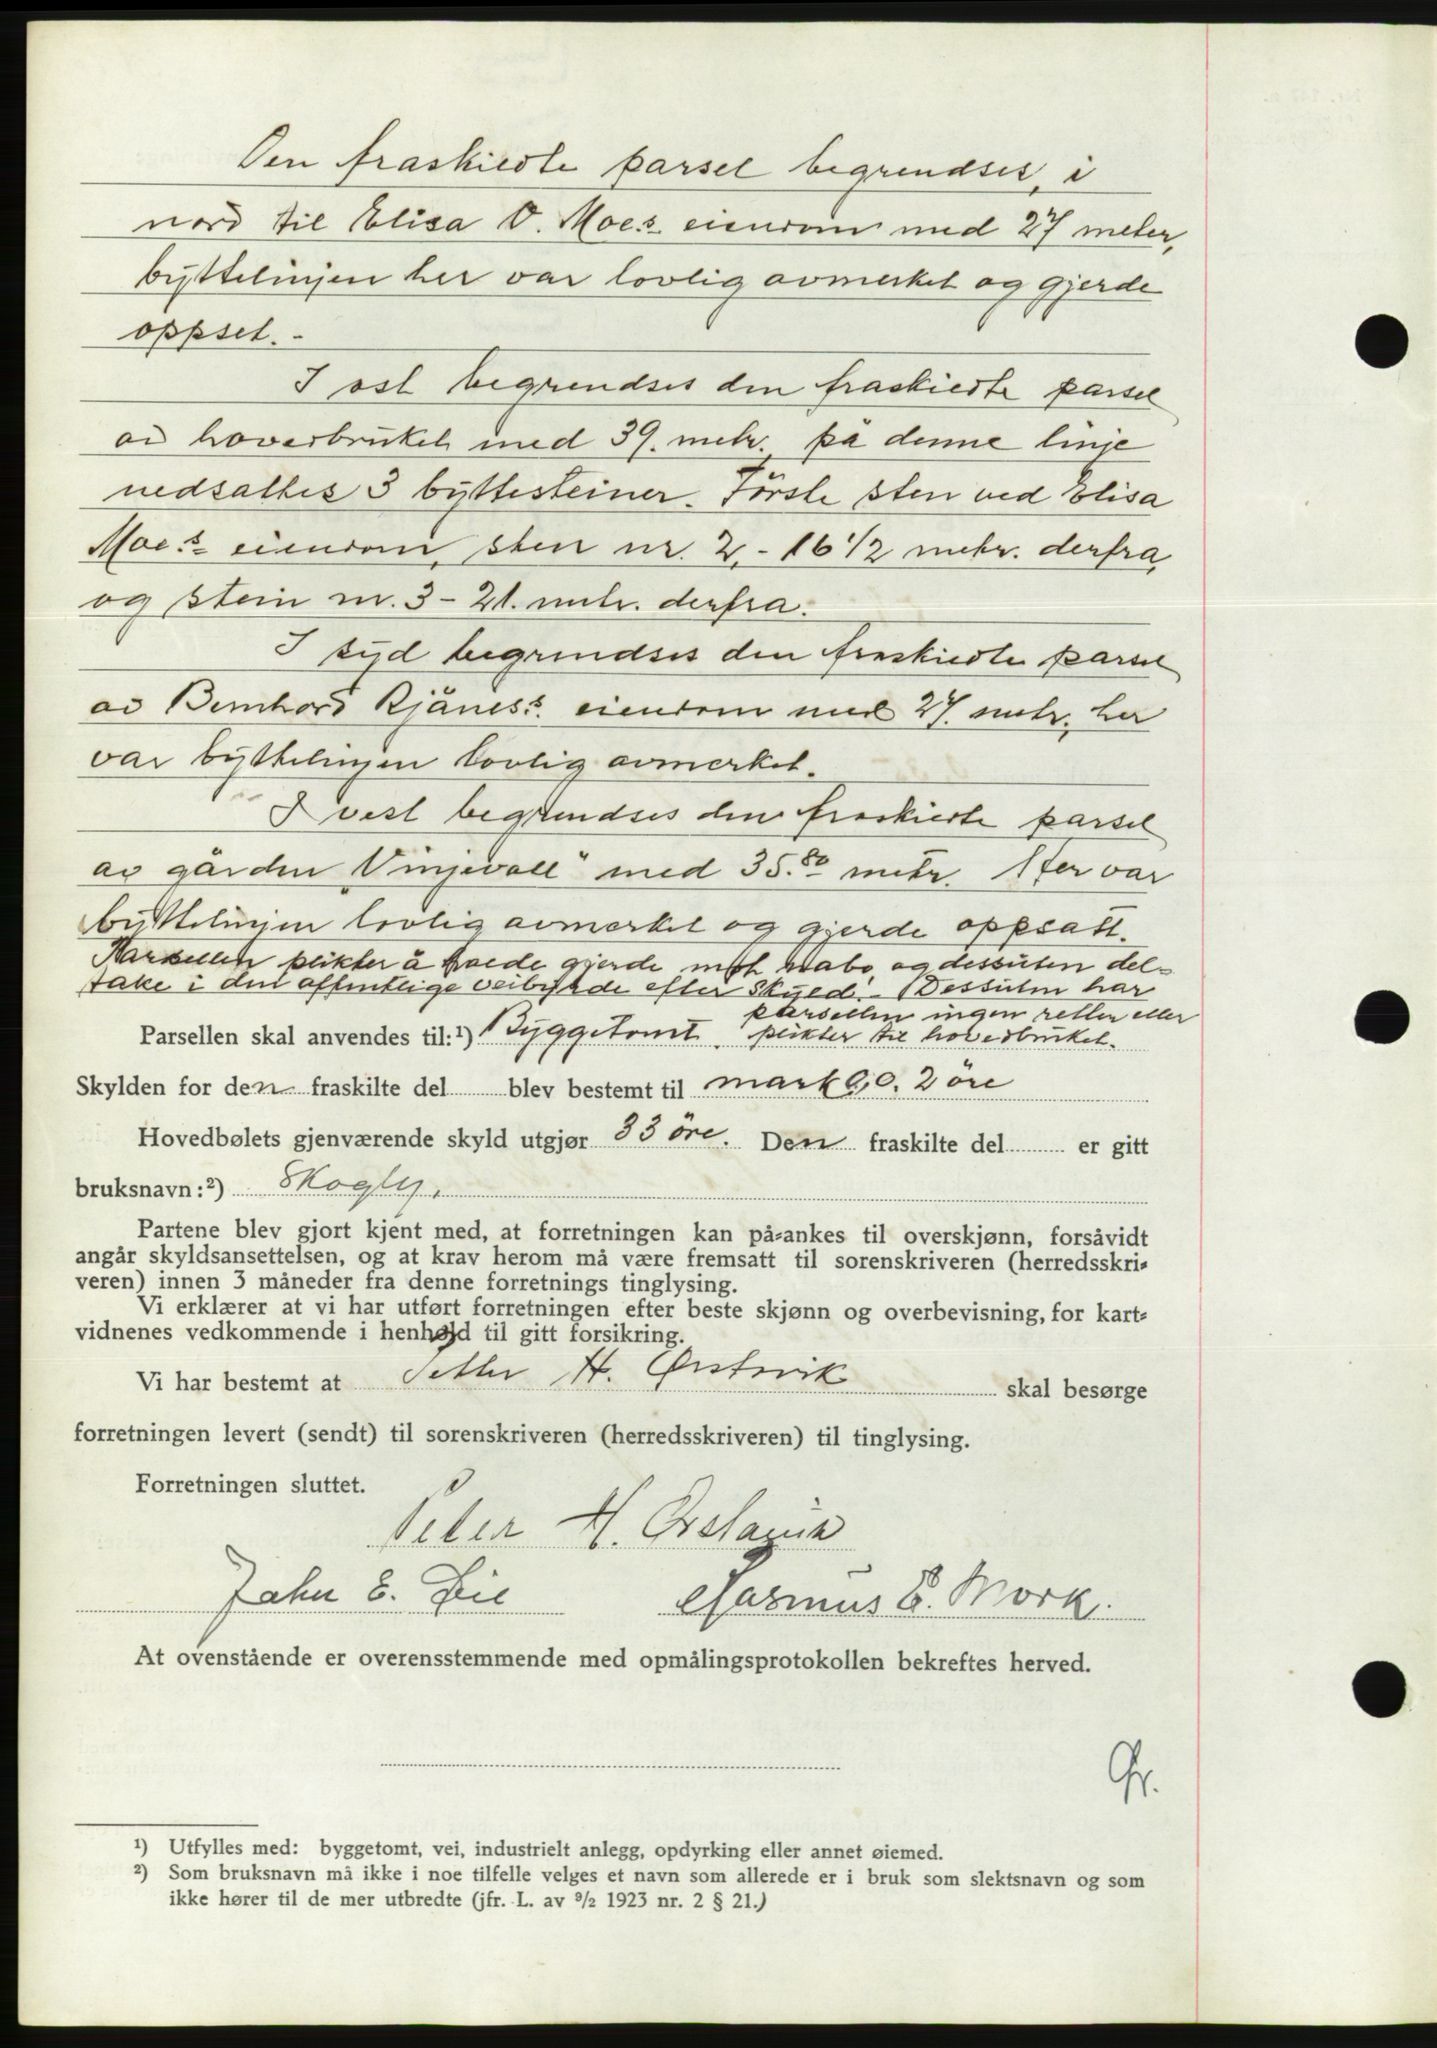 Den fraskiedte parsel begrendses, i
nord til Elisa O. Moe.s eiendom med 27 meter,
byttelinjen her var lovlig avmerket og gjerde
oppset. -
I ost begrendses den fraskiedte parsel
av hoverbruket med 39. metr. på denne linje
nedsattes 3 byttesteiner. Förste sten ved Elisa
Moe.s eiendom, sten nr. 2, - 16 1/2 metr. derfra,
og stein nr. 3 - 21. metr. derfra.
I syd begrendses den fraskiedte parsel
av Bernhard Rjånes.s eiendom med 27. metr. her
var byttelinjen lovlig avmerket.
I vest begrendses den fraskiedte parsel
av gården "Vinjevoll" med 35.80 metr. Her var
byttelinjen lovlig avmerket og gjerde oppsatt.
Parsellen plikter å holde gjerde mot nabo, og dessuten del-
take i den offentlige veibyrde efter Skyld. - Dessuten har
parsellen ingen retter eller
Parsellen skal anvendes til:¹) Byggetomt. plikter til hovedbruket.
Skylden for den fraskilte del blev bestemt til mark 0,0. 2 öre
Hovedbølets gjenværende skyld utgjør 33 öre. Den fraskilte del er gitt
bruksnavn:²) Skogly.
Partene blev gjort kjent med, at forretningen kan på-ankes til overskjønn, forsåvidt
angår skyldsansettelsen, og at krav herom må være fremsatt til sorenskriveren (herredsskri-
veren) innen 3 måneder fra denne forretnings tinglysing.
Vi erklærer at vi har utført forretningen efter beste skjønn og overbevisning, for kart-
vidnenes vedkommende i henhold til gitt forsikring.
Vi har bestemt at Petter H. Ørstavik skal besørge
forretningen levert (sendt) til sorenskriveren (herredsskriveren) til tinglysing.
Forretningen sluttet.
Peter H. Ørstavik
John E. Lie Rasmus E. Mork.
At ovenstående er overensstemmende med opmålingsprotokollen bekreftes herved.
Gr.
¹) Utfylles med: byggetomt, vei, industrielt anlegg, opdyrking eller annet øiemed.
²) Som bruksnavn må ikke i noe tilfelle velges et navn som allerede er i bruk som slektsnavn og som
ikke hører til de mer utbredte (jfr. L. av 9/2 1923 nr. 2 § 21.)